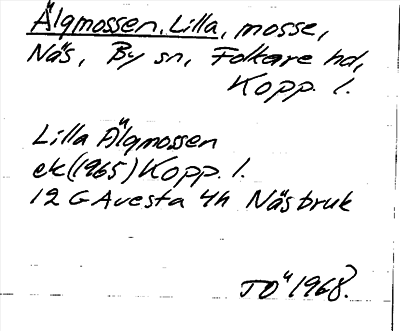 Älgmossen, Lilla, mosse,
Näs, By sn, Folkare hd,
Kopp. l.
Lilla Älgmossen
ek(1965) Kopp. l.
12 G Avesta 4h Näsbruk
TÖ 1968.